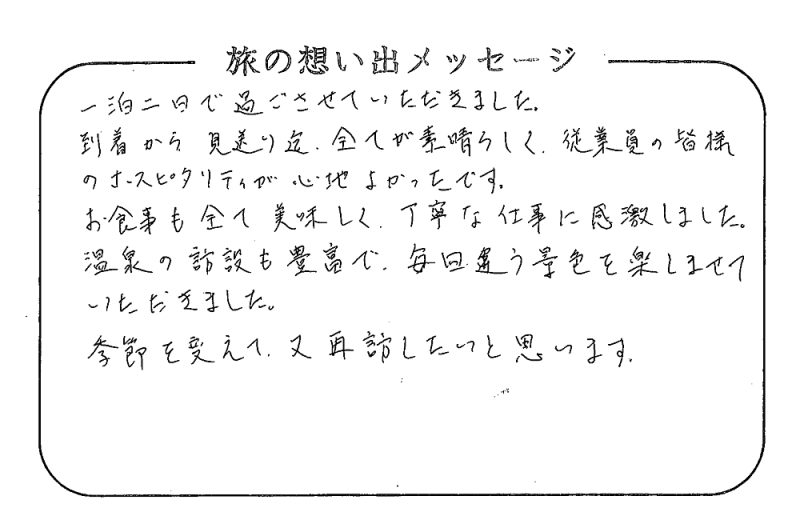 旅の想い出メッセージ
一泊二日で過ごさせていただきました。
到着から見送り迄、全てが素晴らしく、従業員の皆様
のホスピタリティが心地よかったです。
お食事も全て美味しく、丁寧な仕事に感激しました。
温泉の訪設も豊富で、毎回違う景色を楽しませて
いただきました。
季節を変えて、又再訪したいと思います。